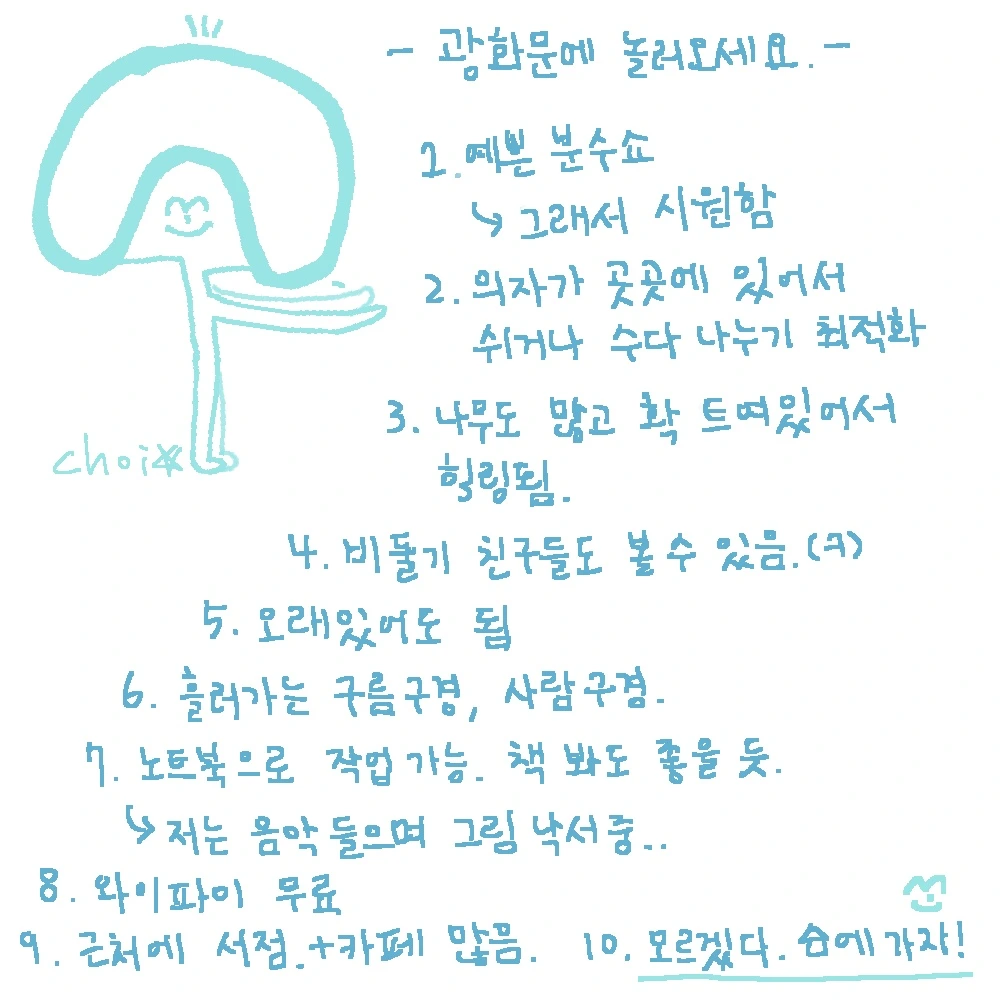 - 광화문에 놀러오세요. -
1. 예쁜 분수쇼
↳ 그래서 시원함
2. 의자가 곳곳에 있어서
쉬거나 수다 나누기 최적화
3. 나무도 많고 확 트여있어서
힐링됨.
choi☆
4. 비둘기 친구들도 볼 수 있음. (ㅋ)
5. 오래있어도 됩
6. 흘러가는 구름구경, 사람구경.
7. 노트북으로 작업가능. 책 봐도 좋을 듯.
↳ 저는 음악 들으며 그림 낙서중..
8. 와이파이 무료
9. 근처에 서점.+카페 많음. 10. 모르겠다. 집에가자!